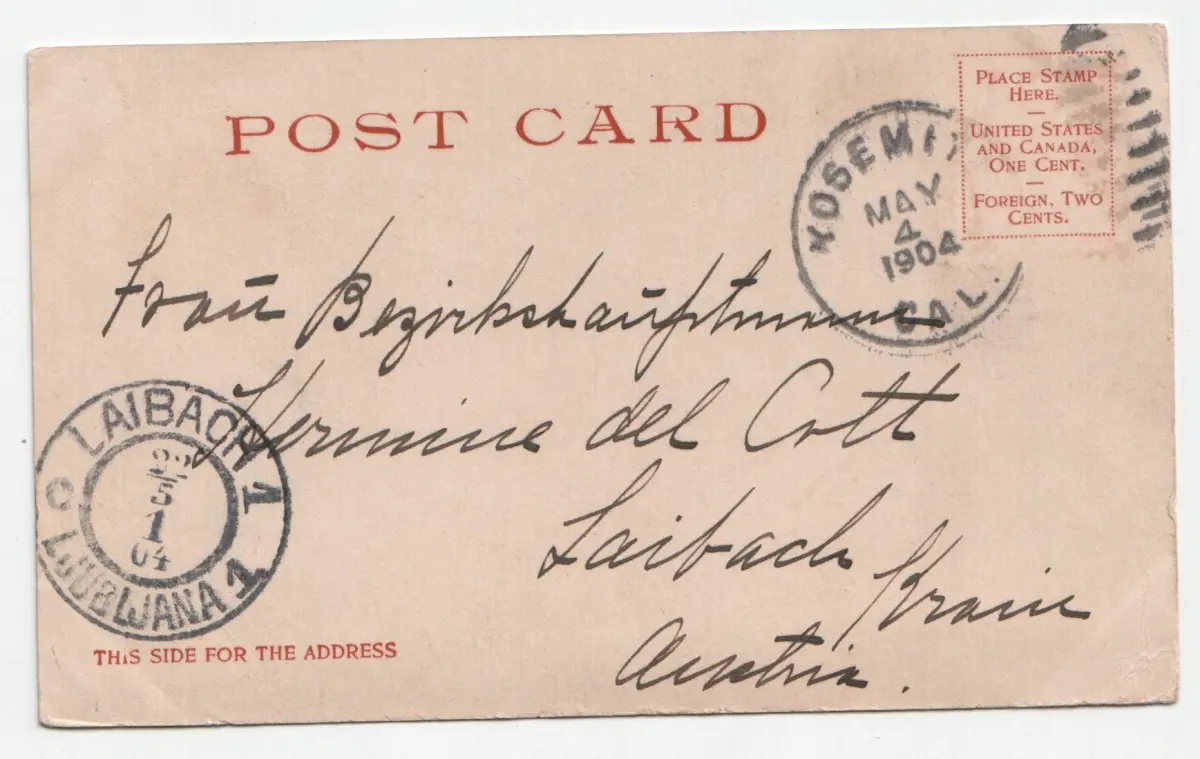 POST CARD
PLACE STAMP
HERE.
UNITED STATES
AND CANADA,
ONE CENT.
FOREIGN, TWO
CENTS.
MAY
4
1904
CAL.
Frau Bezirkshauptmann
Hermine del Cott
Laibach
Krain
Austria.
LAIBACH 1
5
1
04
LJUBLJANA 1
THIS SIDE FOR THE ADDRESS